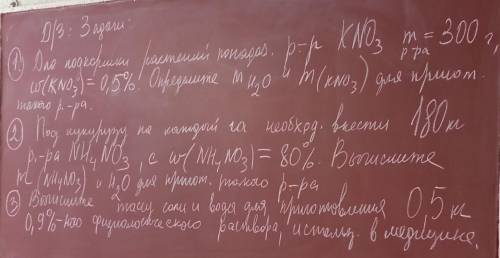 Д/з: Задачи:
① Для подкормки растений понадоб. р-р KNO₃ m р-ра = 300 г,
ω(KNO₃) = 0,5%. Определите m H₂O и m(KNO₃) для пригот.
такого р.-ра.
② Под кукурузу на каждый га необход. внести 180 кг
р.-ра NH₄NO₃, с ω(NH₄NO₃) = 80%. Вычислите
m (NH₄NO₃) и H₂O для пригот. такого р-ра
③ Вычислите массу соли и воды для приготовления 0,5 кг
0,9%-ного физиологического раствора, использ. в медицине.